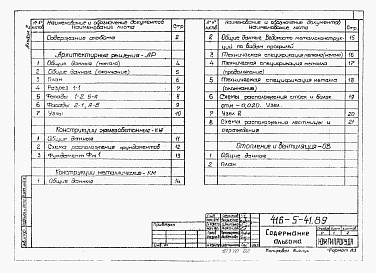 Альбом
№№ листа
Наименование и обозначение документов
Наименование листа
Стр.
Содержание альбома 2
Архитектурные решения-АР
1 Общие данные (начало) 4
2 Общие данные (окончание) 5
3 План 6
4 Разрез 1-1 7
5 Фасады 1-2, Б-А 8
6 Фасады 2-1, А-Б 9
7 Узлы 10
Конструкции железобетонные-КЖ
1 Общие данные 11
2 Схема расположения фундаментов 12
3 Фундамент Фм1 13
Конструкции металлические-КМ
1 Общие данные 14
№№ листа
Наименование и обозначение документов
Наименование листа
Стр.
2 Общие данные Ведомость металлоконструк- 15
ций по видам профилей
3 Техническая спецификация металла (начало) 16
4 Техническая спецификация металла 17
(продолжение)
5 Техническая спецификация металла 18
(окончание)
6 Схемы расположения стоек и балок 19
отм. -0,020. Узел.
7 Узел 20
8 Схема расположения лестницы и 21
ограждения
Отопление и вентиляция-ОВ
1 Общие данные
2 План
Привязан
416-5-41.89
Содержание
альбома
Копировал
Формат А3